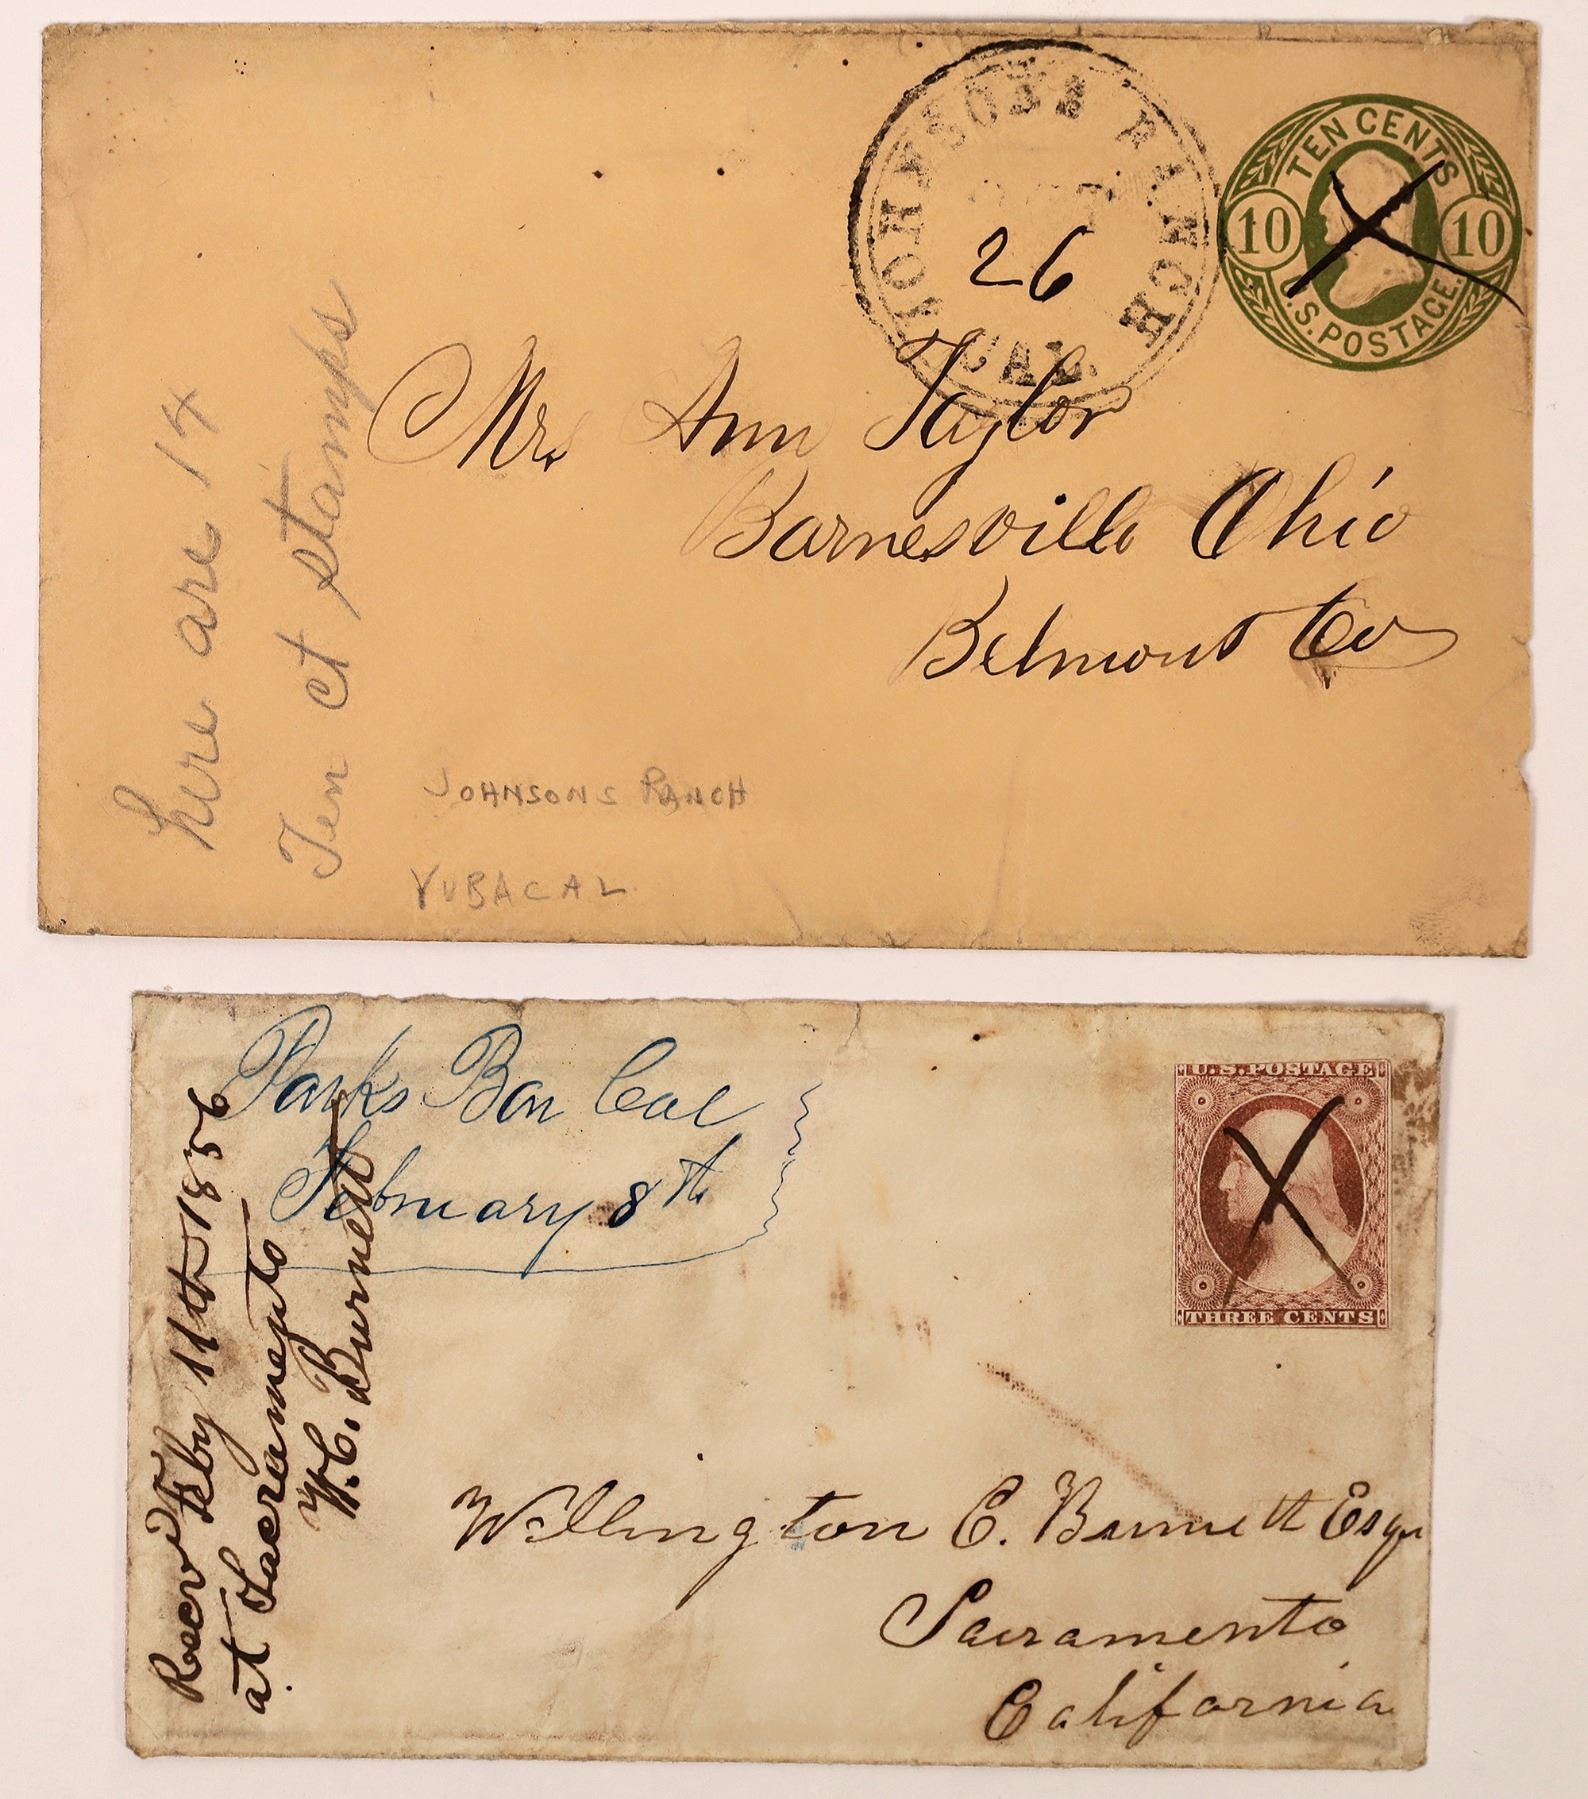 JOHNSONS RANCH
CAL.
26
TEN CENTS
10 10
U.S. POSTAGE.
Mrs Ann Taylor
Barnesville Ohio
Belmont Co
here are 14
Ten ct stamps
JOHNSONS RANCH
YUBA CAL
Parks Bar Cal
February 8th
U.S. POSTAGE
THREE CENTS
Recvd Feby 11th 1856
at Sacramento
W.C. Burnett
Wellington C. Burnett Esqr
Sacramento
California